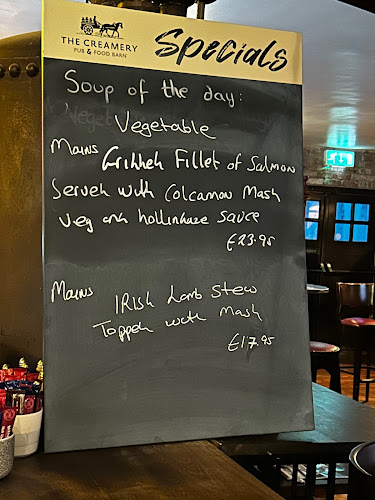 THE CREAMERY
PUB & FOOD BARN
Specials
Soup of the day:
Vegetable
Mains Grilled Fillet of Salmon
Served with Colcannon Mash
Veg and hollindaze sauce
€23.95
Mains IRISH Lamb Stew
Topped with Mash
€17.95